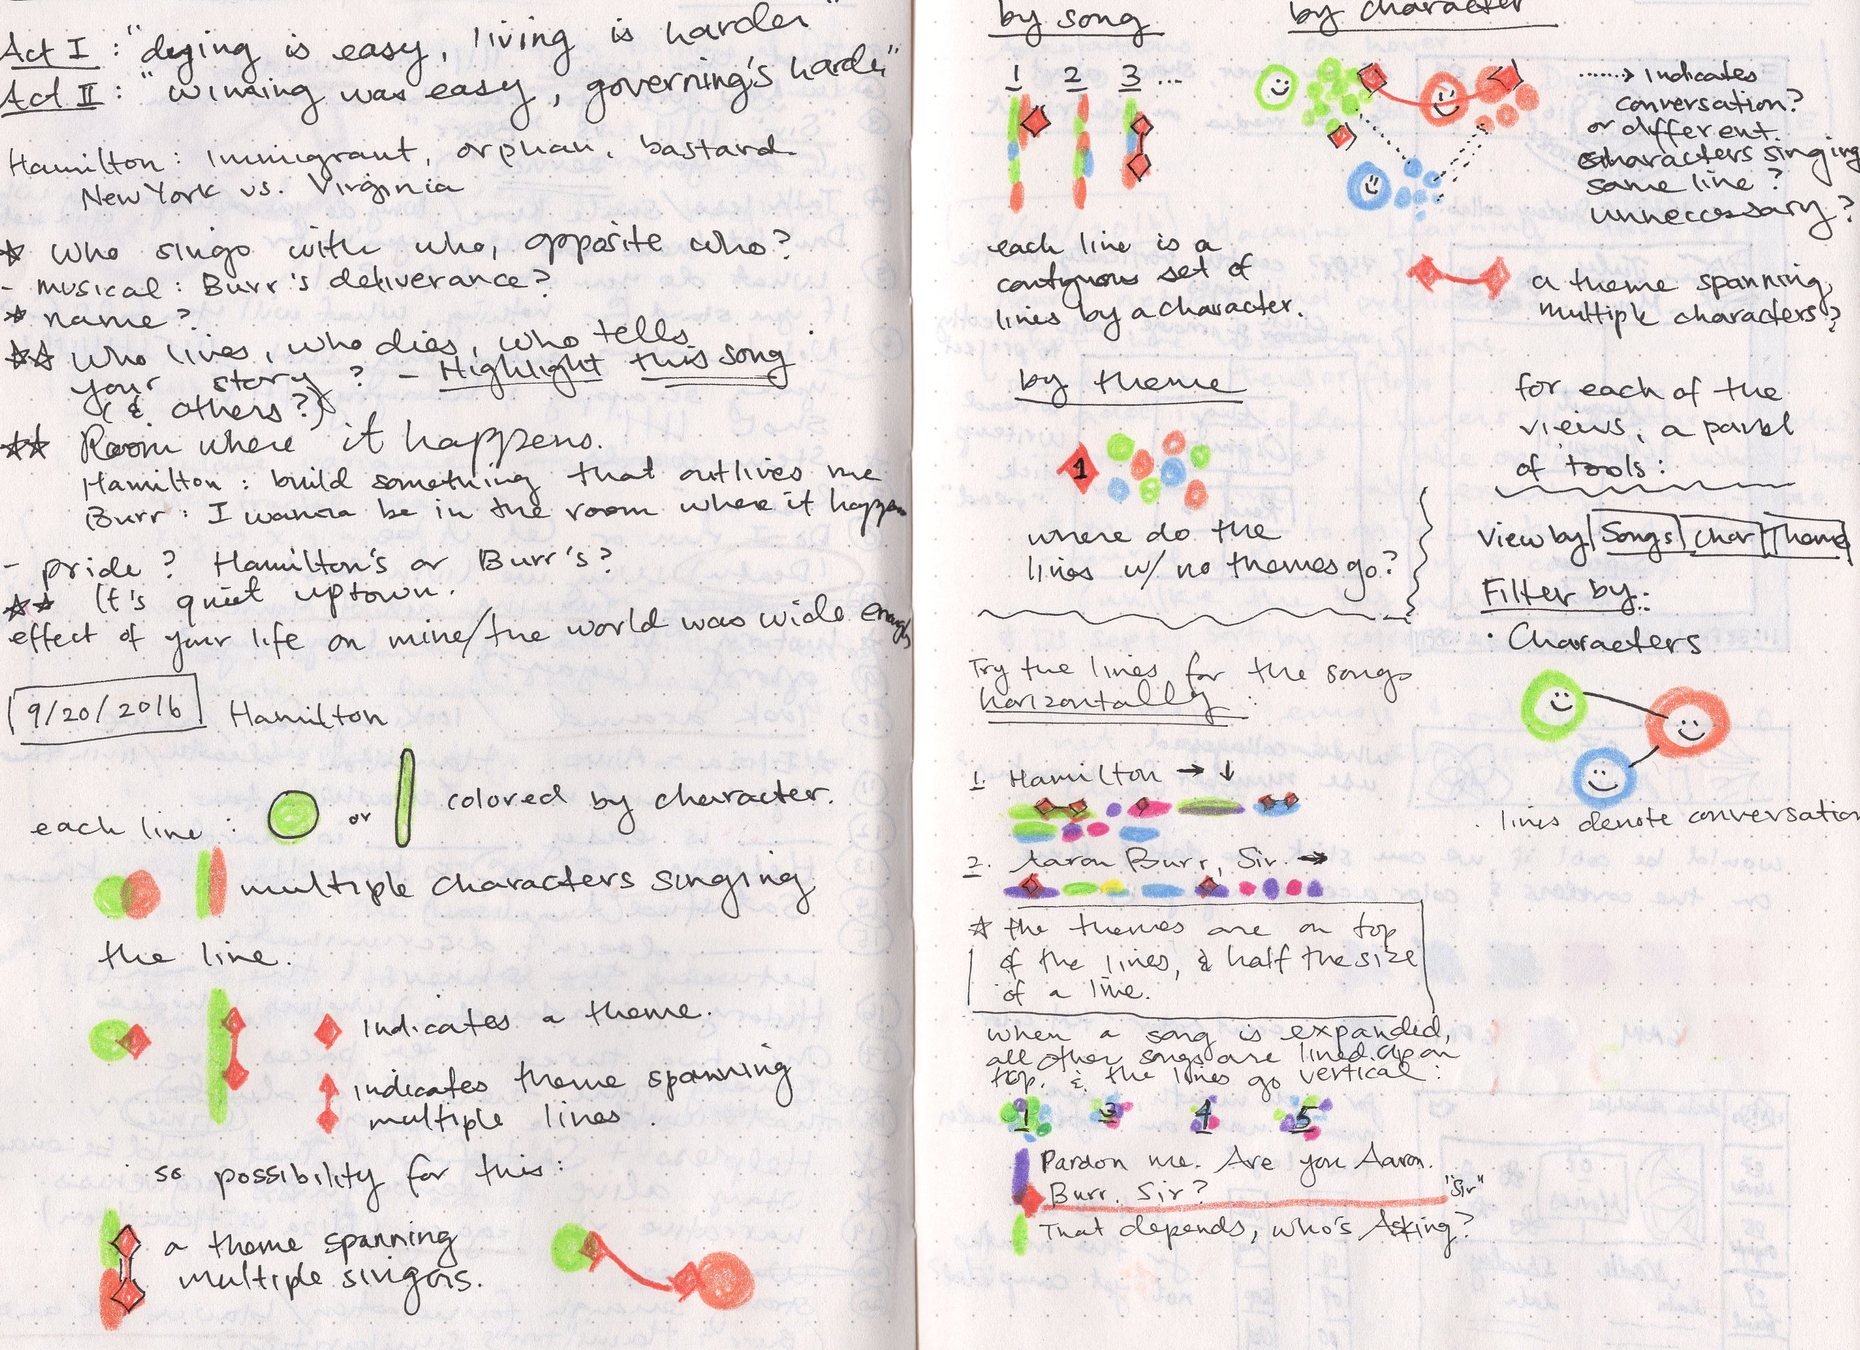 Act I : "dying is easy, living is harder"
Act II : "winning was easy, governing's harder"
Hamilton : immigrant, orphan, bastard
New York vs. Virginia
who sings with who, opposite who?
- musical : Burr's deliverance?
name?
who lives, who dies, who tells
your story ? - Highlight this song
(& others?)
Room where it happens.
Hamilton : build something that outlives me
Burr : I wanna be in the room where it happen
- pride ? Hamilton's or Burr's?
It's quiet uptown.
effect of your life on mine/the world was wide enough
9/20/2016 Hamilton
each line : or colored by character.
multiple characters singing
the line.
indicates a theme.
indicates theme spanning
multiple lines.
so possibility for this :
a theme spanning
multiple singers.
by song
1 2 3 ...
each line is a
contiguous set of
lines by a character.
by character
indicates
conversation?
or different
characters singing
same line?
unneccessary?
a theme spanning
multiple characters?
by theme
1
where do the
lines w/ no themes go?
for each of the
views, a panel
of tools :
view by Songs Char Theme
Filter by:
· Characters
lines denote conversation
Try the lines for the songs
horizontally :
1. Hamilton → ↓
2. Aaron Burr, Sir. →
the themes are on top
of the lines, & half the size
of a line.
when a song is expanded,
all other songs are lined up on
top. & the lines go vertical :
1 3 4 5
Pardon me. Are you Aaron
Burr. Sir? "Sir"
That depends, who's Asking?